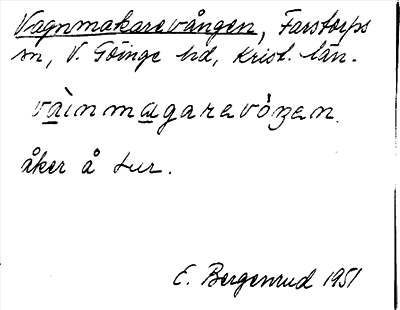 Vagnmakarevången, Farstorps
sn, V. Göinge hd, Krist. län.
vàinmagarevòŋen.
åker å tur.
E. Bergenrud 1951